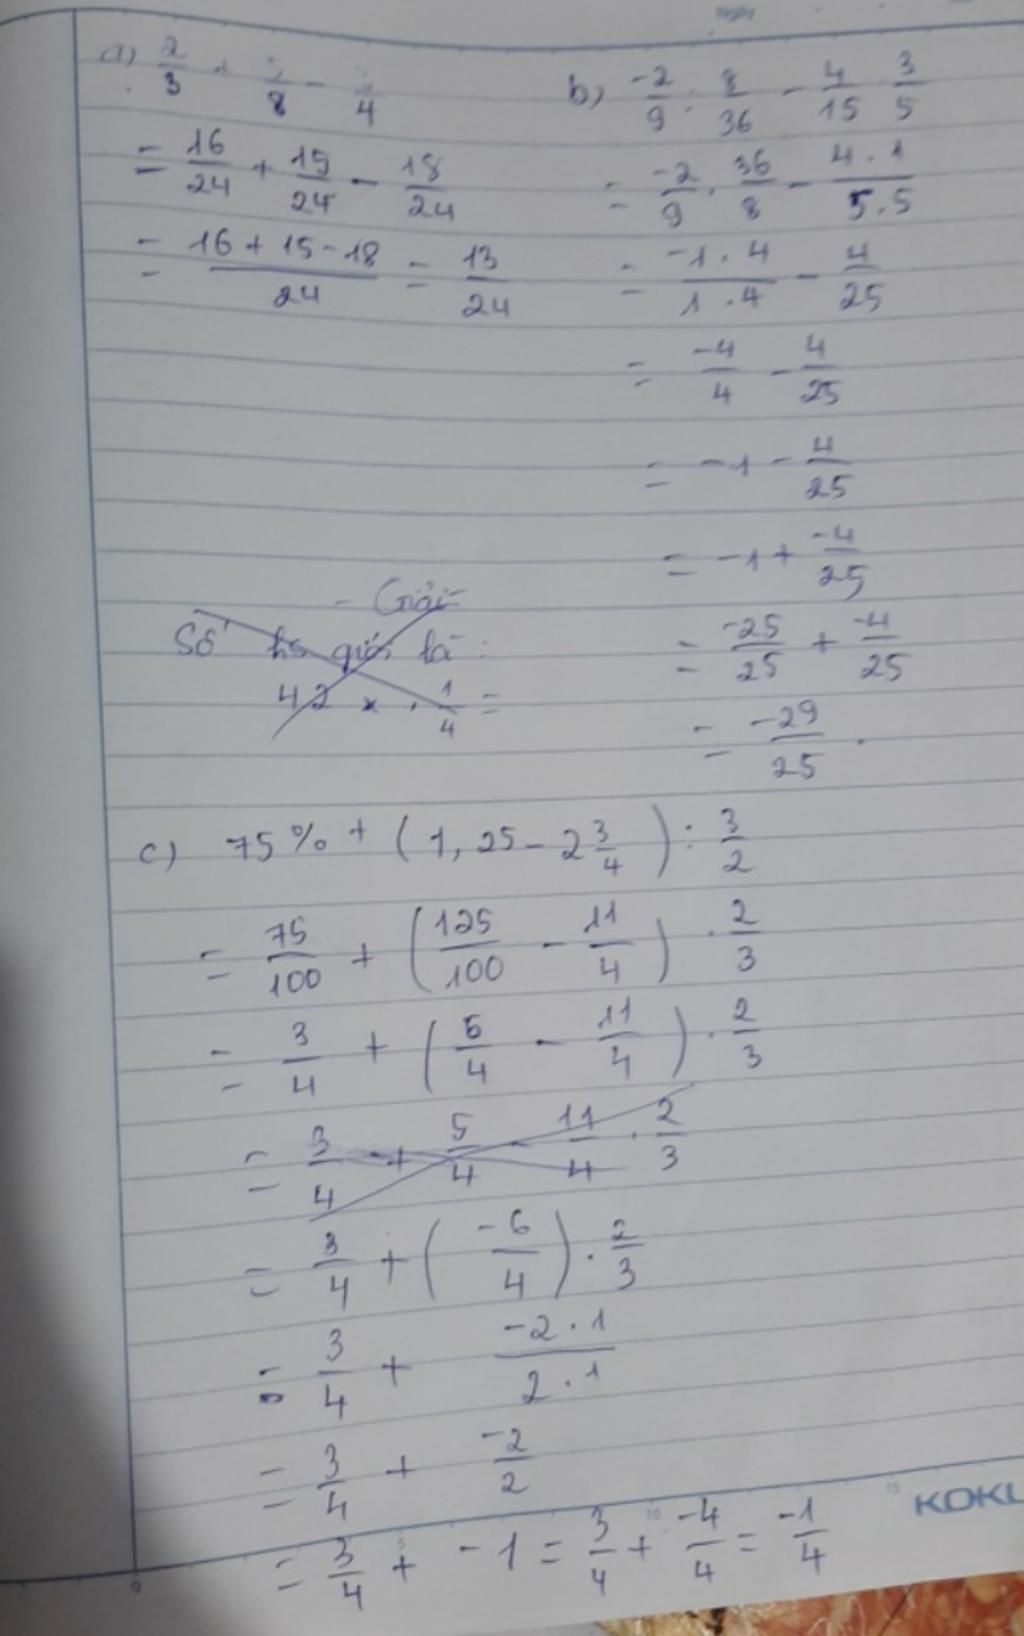 Ngày
a) 2/3 + 5/8 - 3/4
= 16/24 + 15/24 - 18/24
= (16 + 15 - 18)/24 = 13/24
b) -2/9 : 8/36 - 4/15 . 3/5
= -2/9 . 36/8 - (4 . 1)/(5 . 5)
= (-1 . 4)/(1 . 4) - 4/25
= -4/4 - 4/25
= -1 - 4/25
= -1 + -4/25
= -25/25 + -4/25
= -29/25 .
- Giải
Số hs giỏi là :
42 x . 1/4 =
c) 75% + (1,25 - 2 3/4) : 3/2
= 75/100 + (125/100 - 11/4) . 2/3
= 3/4 + (5/4 - 11/4) . 2/3
= 3/4 + 5/4 - 11/4 . 2/3
= 3/4 + (-6/4) . 2/3
= 3/4 + (-2 . 1)/(2 . 1)
= 3/4 + -2/2
= 3/4 + -1 = 3/4 + -4/4 = -1/4
0 5 10 15